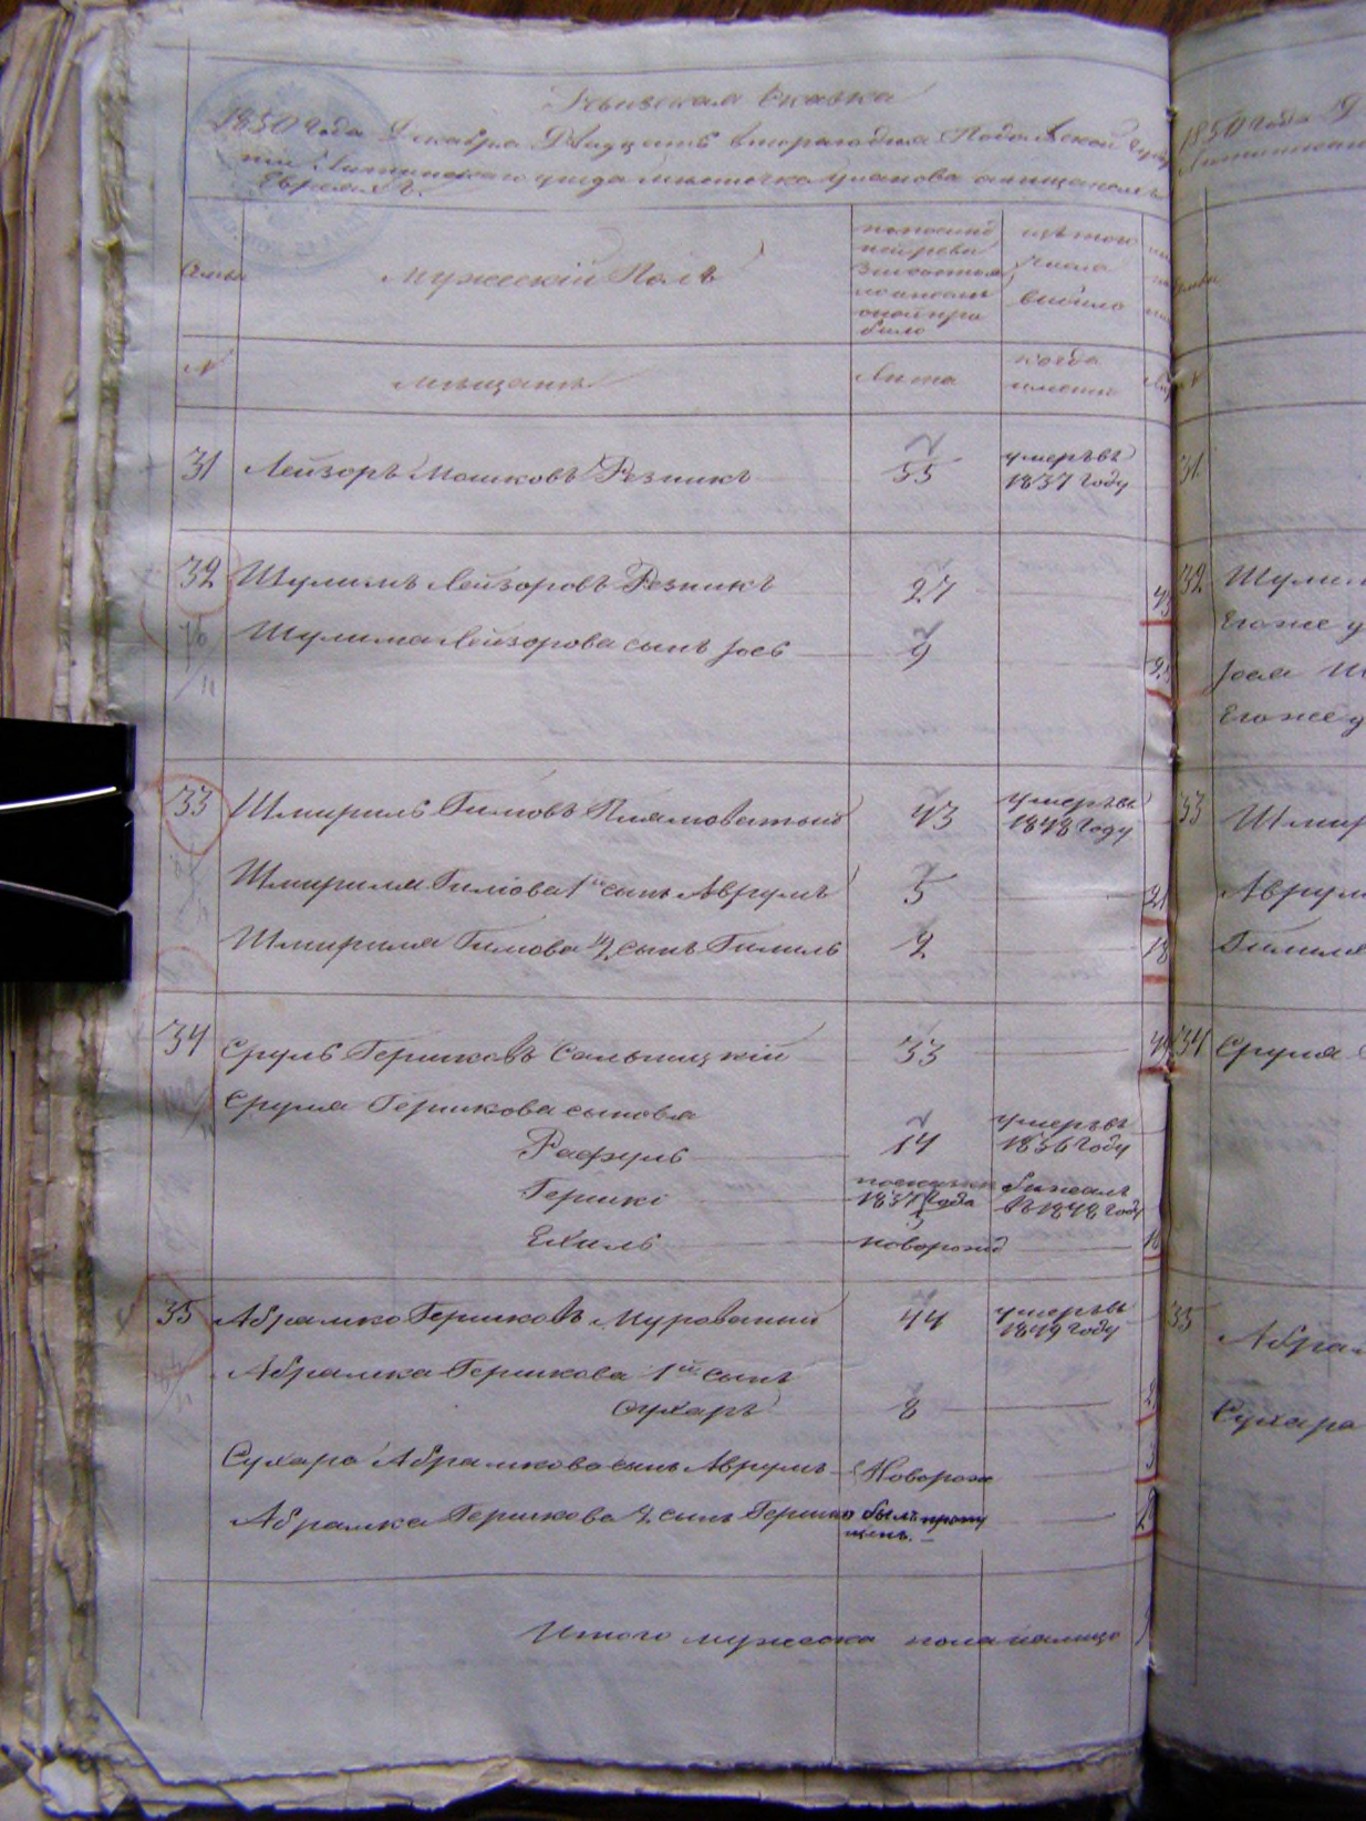 Ревизская Сказка
1850 Года Декабря Двадцать втораго дня Подольской Губер
нии Литинскаго уезда местечка Уланова о мещанахъ
Евреяхъ.
Семьи
Мужескій Полъ
по последней ревизіи состояло и после оной прибыло
изъ того числа выбыло
№
мещане
Лета
когда именно
31 Лейзоръ Мошковъ Резникъ 55 умеръ въ 1837 Году
32 Шулимъ Лейзоровъ Резникъ 27
Шулима Лейзорова сынъ Іось 9
33 Шмириль Гимовъ 43 умеръ въ 1848 Году
Шмириля Гимова 1й сынъ Аврумъ 5 21
Шмириля Гимова 2 сынъ Гимиль 2 18
34 Сруль Гершковъ Сальницкій 33 49
Сруля Гершкова сыновья
Рафуль 14 умеръ въ 1836 Году
Гершко 1837 Года бежалъ въ 1848 Году
Ехиль новорожд
35 Абрамко Гершковъ Мурованый 44 умеръ въ 1849 Году
Абрамка Гершкова 1й сынъ
Сухаръ 8
Сухара Абрамкова сынъ Аврумъ Новорож
Абрамка Гершкова 2 сынъ Гершко былъ пропущенъ.
Итого мужеска пола налицо
1850 Года
31
32 Шули
Его же
Іося
Его же
33 Шмир
Аврум
Гимиля
34 Сруля
35
Абрам
Сухара